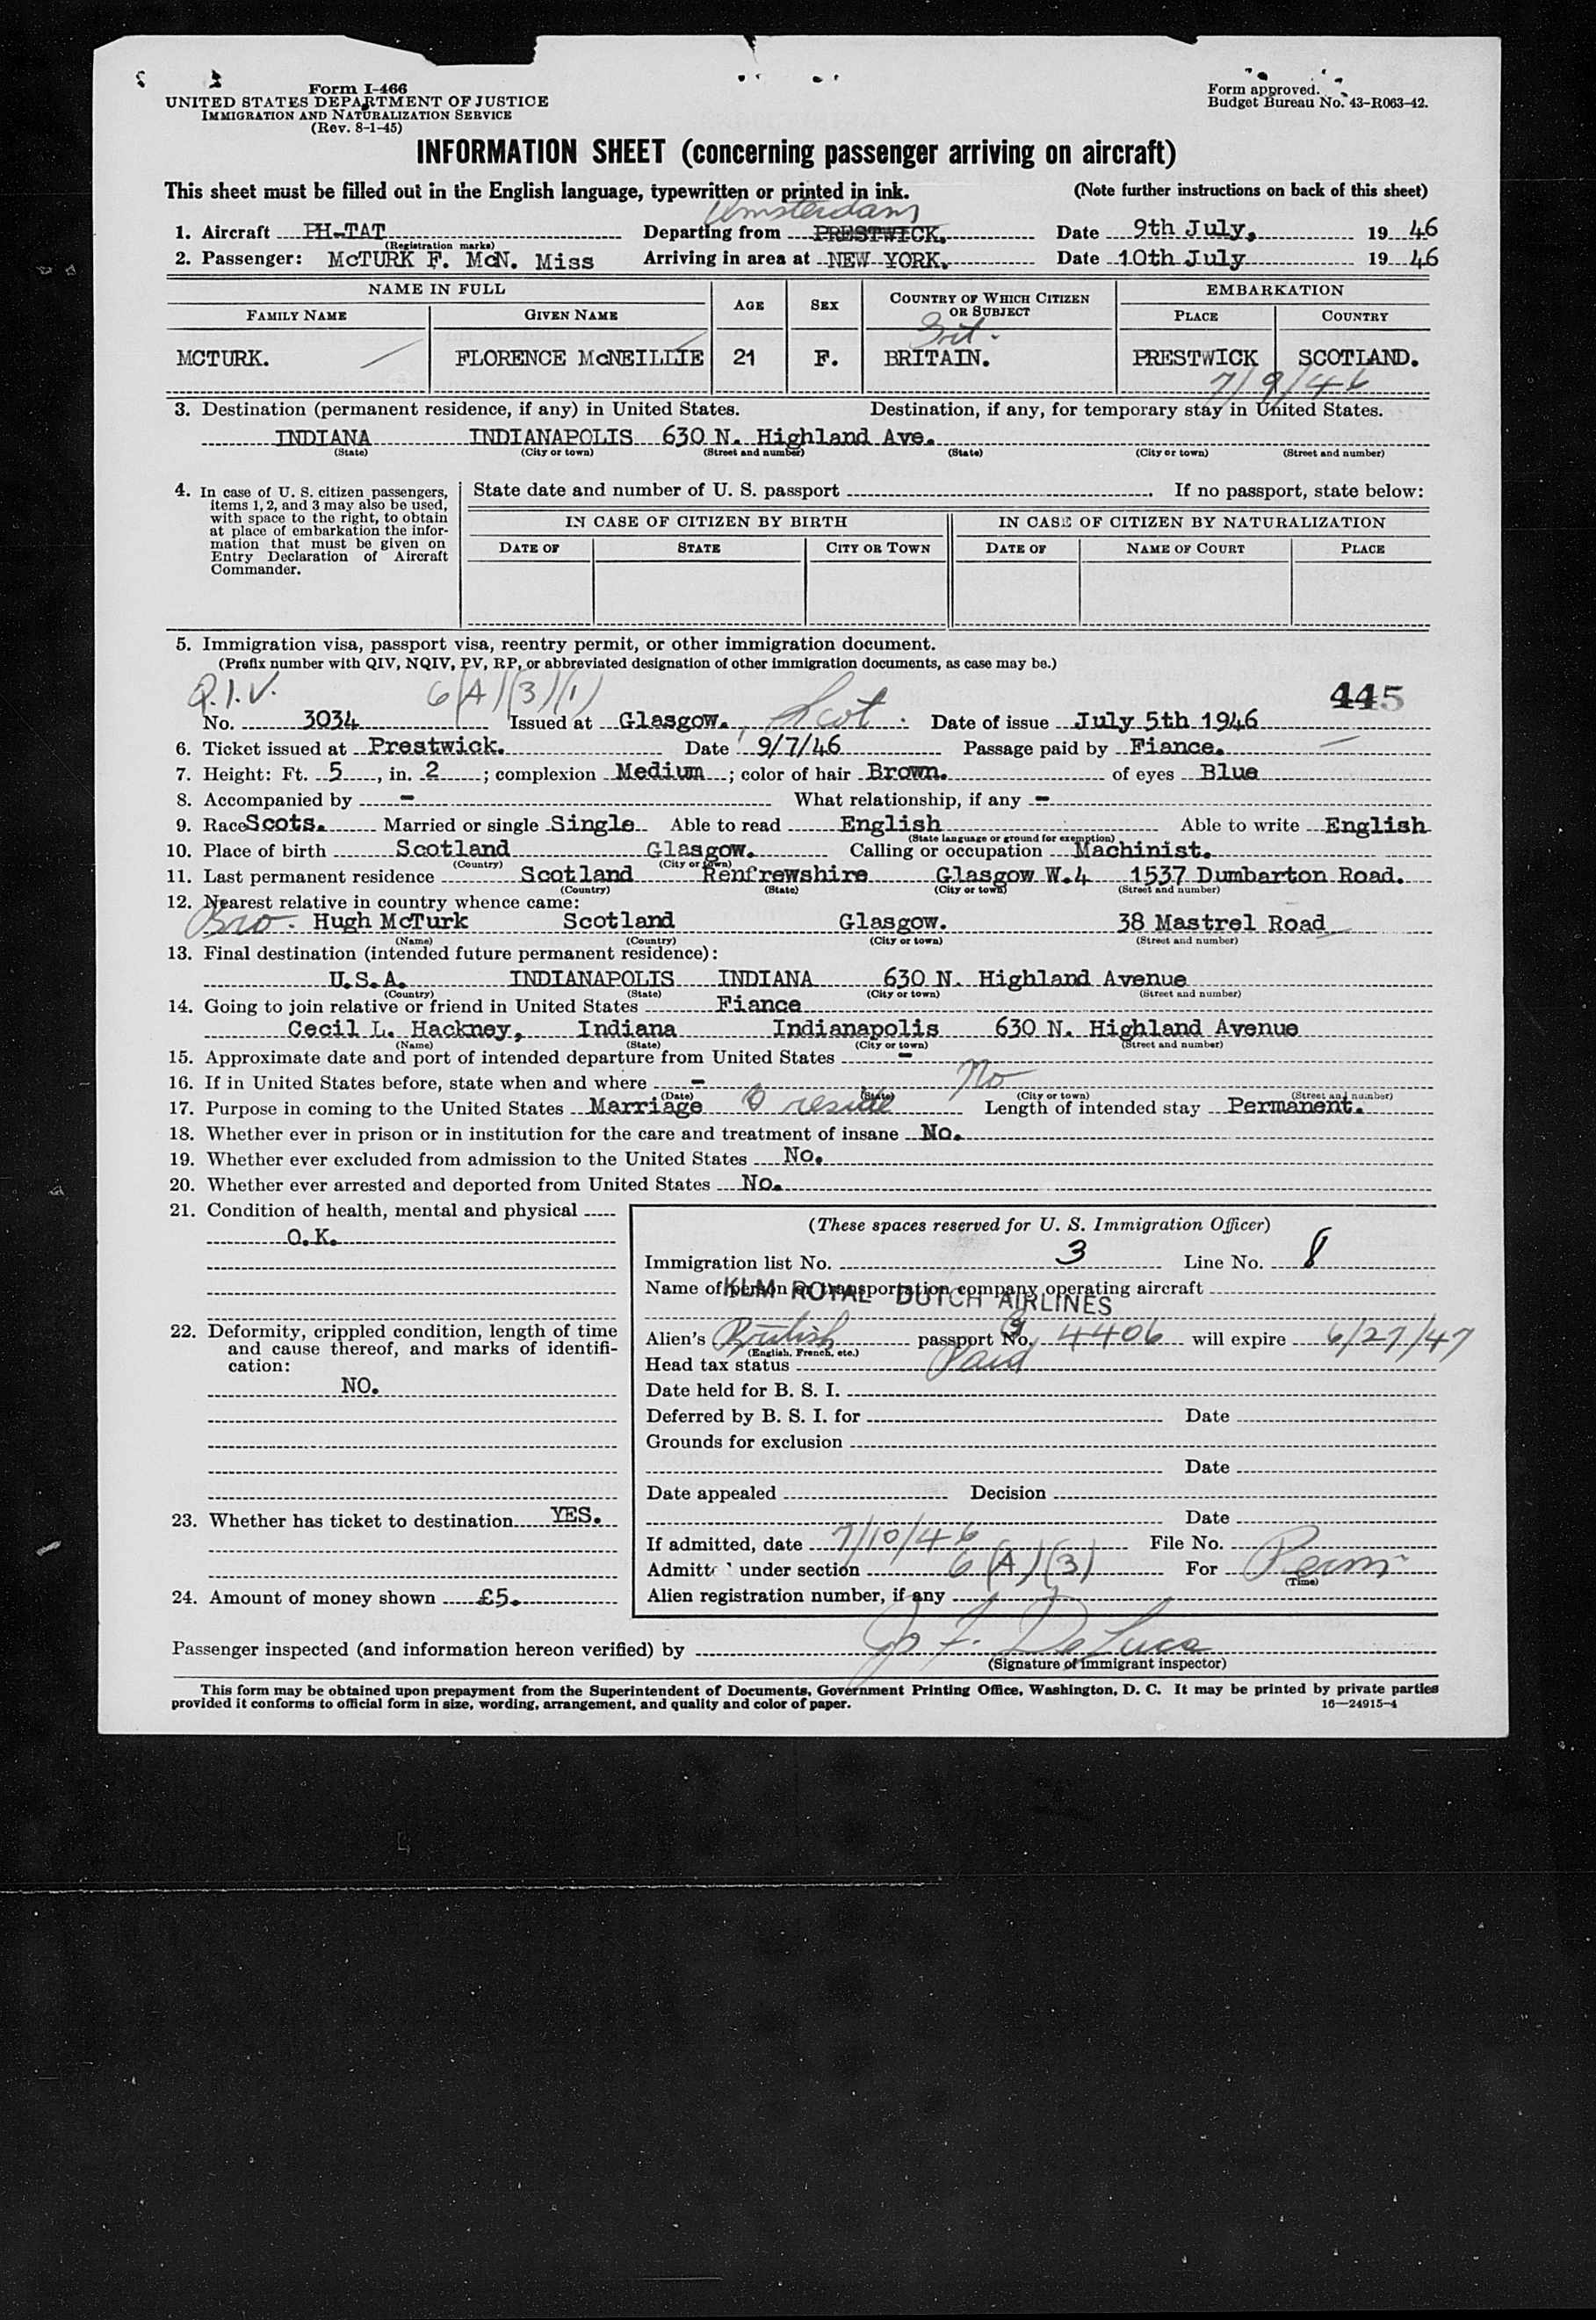 Form I-466
UNITED STATES DEPARTMENT OF JUSTICE
IMMIGRATION AND NATURALIZATION SERVICE
(Rev. 8-1-45)
Form approved.
Budget Bureau No. 43-R063-42.
INFORMATION SHEET (concerning passenger arriving on aircraft)
This sheet must be filled out in the English language, typewritten or printed in ink. (Note further instructions on back of this sheet)
Amsterdam
1. Aircraft PH-TAT Departing from PRESTWICK. Date 9th July, 1946
(Registration marks)
2. Passenger: McTURK F. McN. Miss Arriving in area at NEW YORK. Date 10th July 1946
NAME IN FULL AGE SEX COUNTRY OF WHICH CITIZEN OR SUBJECT EMBARKATION
FAMILY NAME GIVEN NAME PLACE COUNTRY
Brit.
MCTURK. FLORENCE McNEILLIE 21 F. BRITAIN. PRESTWICK SCOTLAND.
7/9/46
3. Destination (permanent residence, if any) in United States. Destination, if any, for temporary stay in United States.
INDIANA INDIANAPOLIS 630 N. Highland Ave.
(State) (City or town) (Street and number) (State) (City or town) (Street and number)
4. In case of U. S. citizen passengers, items 1, 2, and 3 may also be used, with space to the right, to obtain at place of embarkation the information that must be given on Entry Declaration of Aircraft Commander.
State date and number of U. S. passport . If no passport, state below:
IN CASE OF CITIZEN BY BIRTH IN CASE OF CITIZEN BY NATURALIZATION
DATE OF STATE CITY OR TOWN DATE OF NAME OF COURT PLACE
5. Immigration visa, passport visa, reentry permit, or other immigration document.
(Prefix number with QIV, NQIV, PV, RP, or abbreviated designation of other immigration documents, as case may be.)
Q.I.V. 6(A)(3)(1) 445
No. 3034 Issued at Glasgow. Scot. Date of issue July 5th 1946
6. Ticket issued at Prestwick. Date 9/7/46 Passage paid by Fiance.
7. Height: Ft. 5, in. 2; complexion Medium; color of hair Brown. of eyes Blue
8. Accompanied by - What relationship, if any -
9. Race Scots. Married or single Single Able to read English Able to write English
(State language or ground for exemption)
10. Place of birth Scotland Glasgow. Calling or occupation Machinist.
(Country) (City or town)
11. Last permanent residence Scotland Renfrewshire Glasgow W.4 1537 Dumbarton Road.
(Country) (State) (City or town) (Street and number)
12. Nearest relative in country whence came:
Bro. Hugh McTurk Scotland Glasgow. 38 Mastrel Road
(Name) (Country) (City or town) (Street and number)
13. Final destination (intended future permanent residence):
U.S.A. INDIANAPOLIS INDIANA 630 N. Highland Avenue
(Country) (State) (City or town) (Street and number)
14. Going to join relative or friend in United States Fiance
Cecil L. Hackney, Indiana Indianapolis 630 N. Highland Avenue
(Name) (State) (City or town) (Street and number)
15. Approximate date and port of intended departure from United States -
16. If in United States before, state when and where - No
(Date) (State) (City or town) (Street and number)
17. Purpose in coming to the United States Marriage reside Length of intended stay Permanent.
18. Whether ever in prison or in institution for the care and treatment of insane No.
19. Whether ever excluded from admission to the United States No.
20. Whether ever arrested and deported from United States No.
21. Condition of health, mental and physical
O.K.
22. Deformity, crippled condition, length of time and cause thereof, and marks of identification:
NO.
23. Whether has ticket to destination YES.
24. Amount of money shown £5.
(These spaces reserved for U. S. Immigration Officer)
Immigration list No. 3 Line No. 8
Name of person or transportation company operating aircraft
KLM ROYAL DUTCH AIRLINES
Alien's British passport No. 4406 will expire 6/27/47
(English, French, etc.)
Head tax status Paid
Date held for B. S. I.
Deferred by B. S. I. for Date
Grounds for exclusion
Date
Date appealed Decision
Date
If admitted, date 7/10/46 File No.
Admitt under section 6(A)(3) For Perm
(Time)
Alien registration number, if any
Passenger inspected (and information hereon verified) by Jo F. De Luca
(Signature of immigrant inspector)
This form may be obtained upon prepayment from the Superintendent of Documents, Government Printing Office, Washington, D. C. It may be printed by private parties
provided it conforms to official form in size, wording, arrangement, and quality and color of paper. 16—24915-4